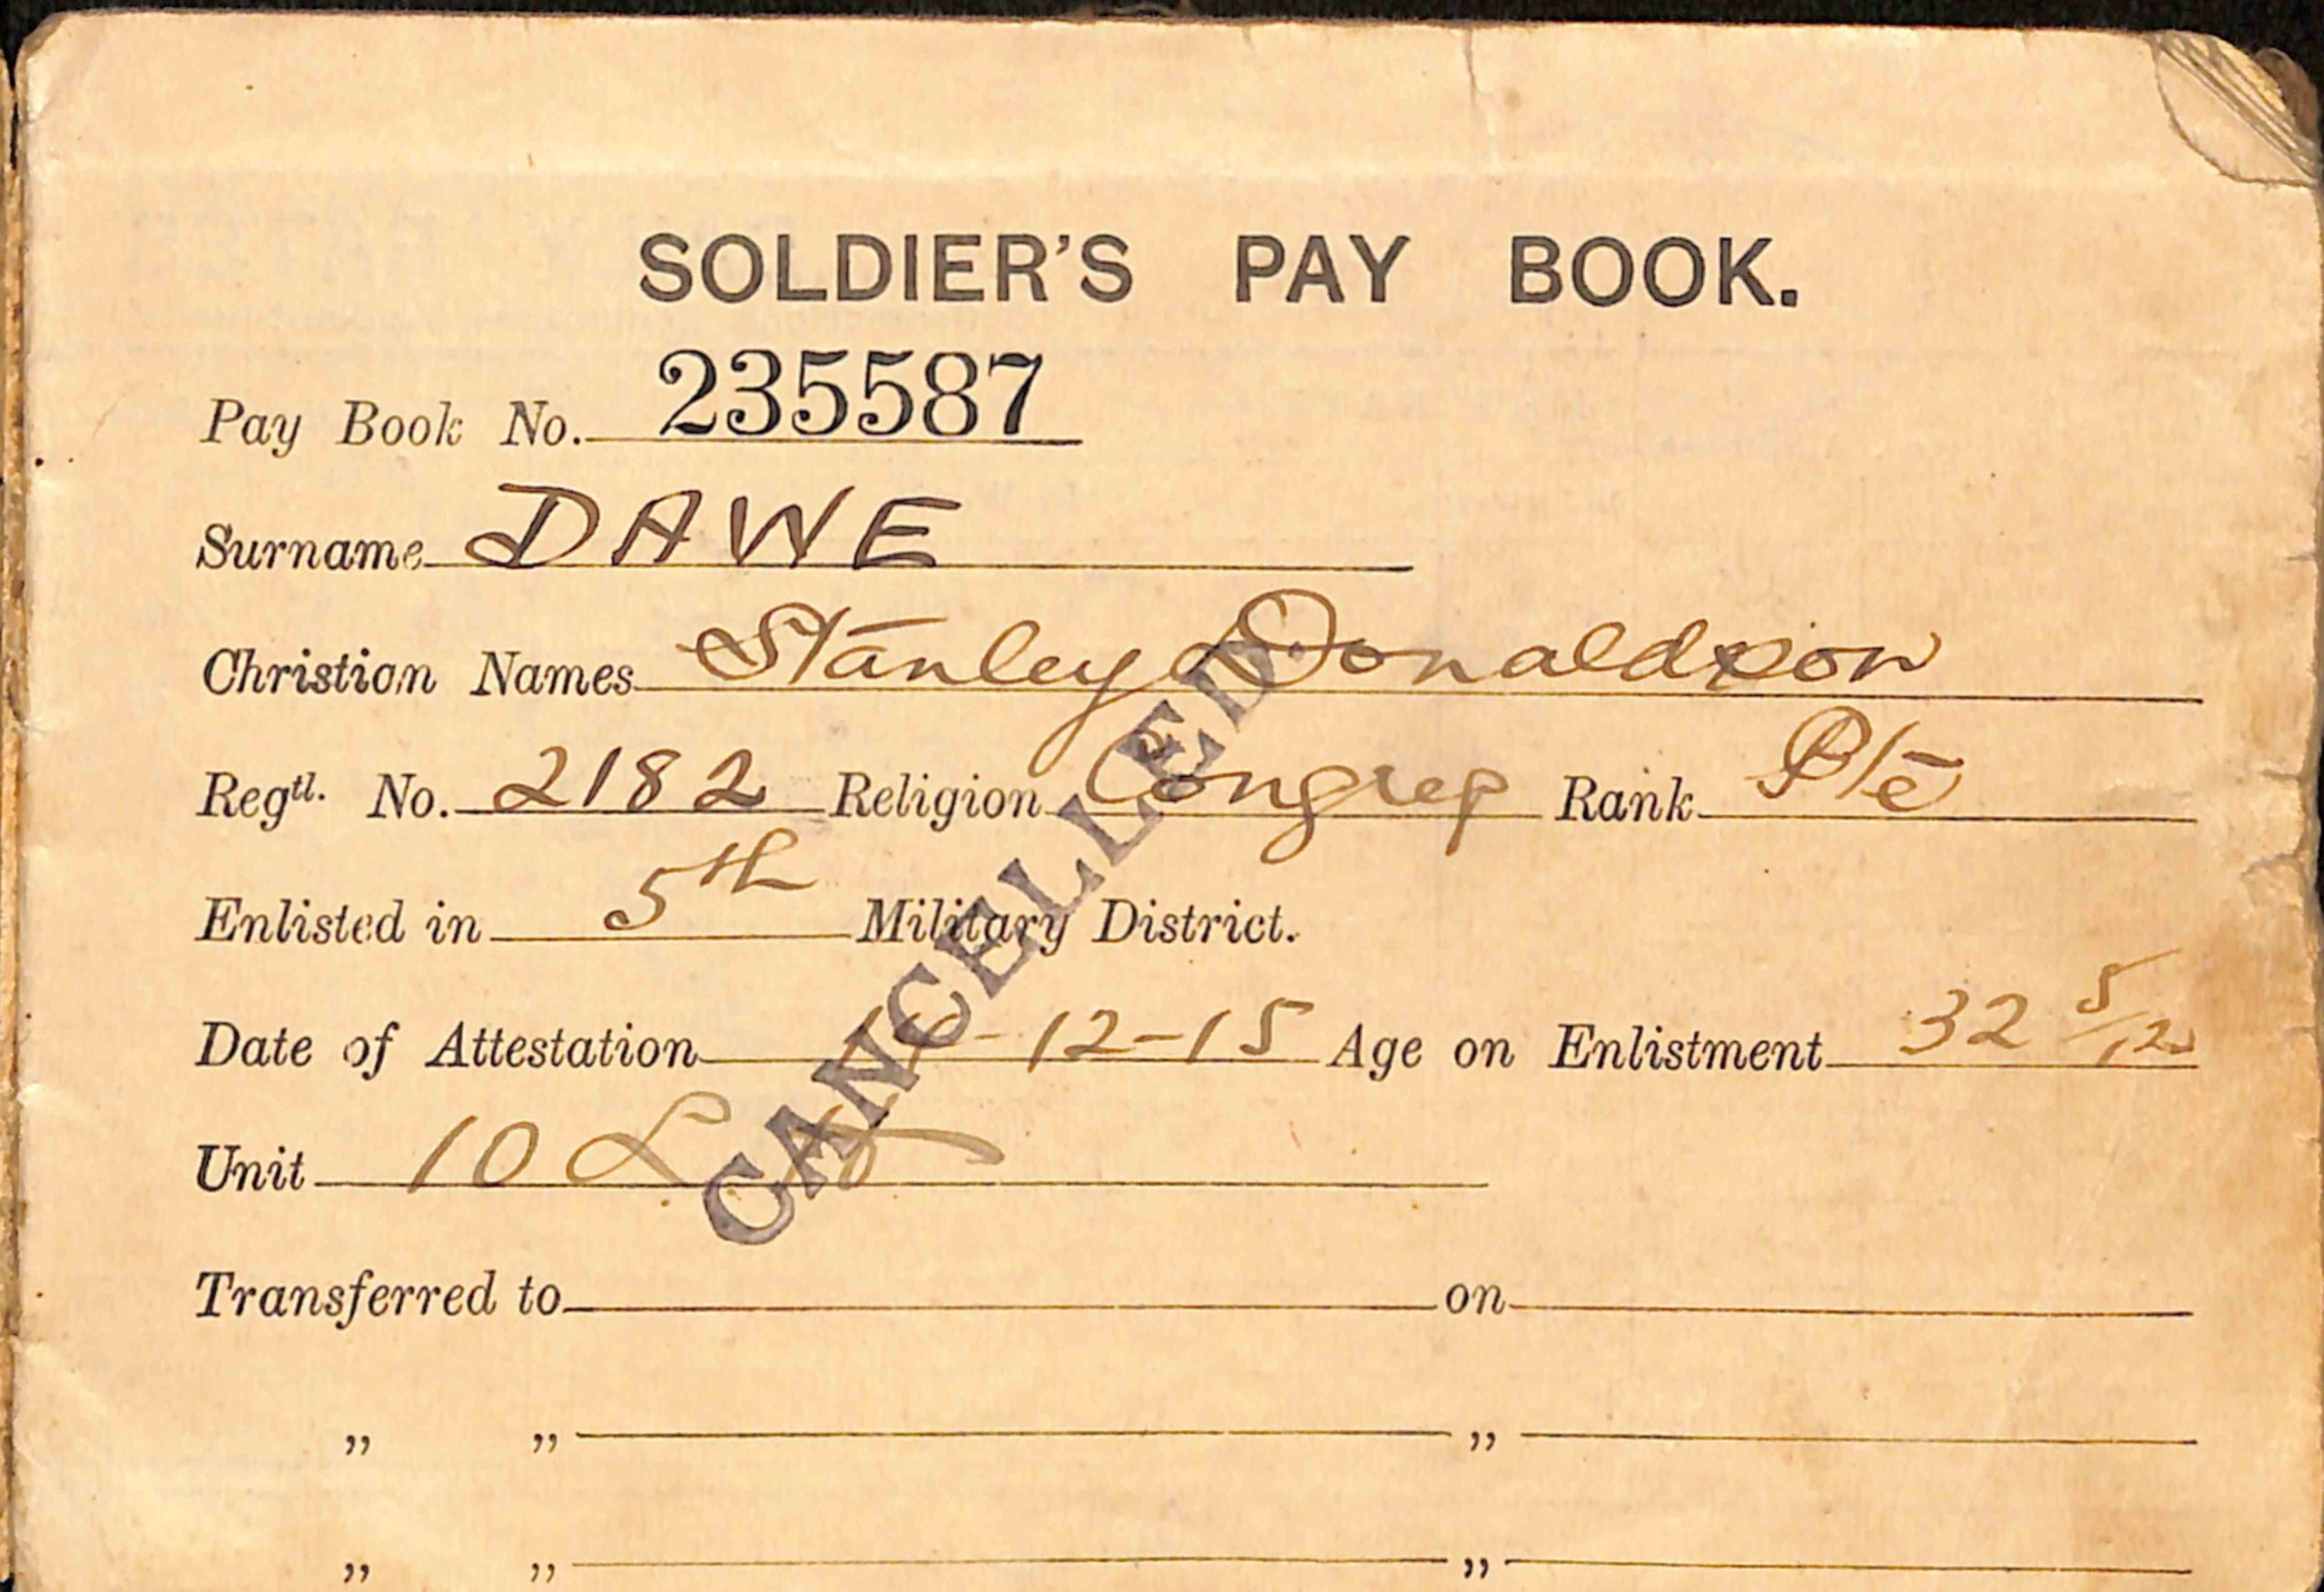 SOLDIER'S PAY BOOK.
Pay Book No. 235587
Surname DAWE
Christian Names Stanley Donaldson
Regtl. No. 2182 Religion Congreg Rank Pte
Enlisted in 5th Military District.
Date of Attestation -12-15 Age on Enlistment 32 5/12
Unit 10 L H
Transferred to on
„ „ „
„ „ „
CANCELLED.